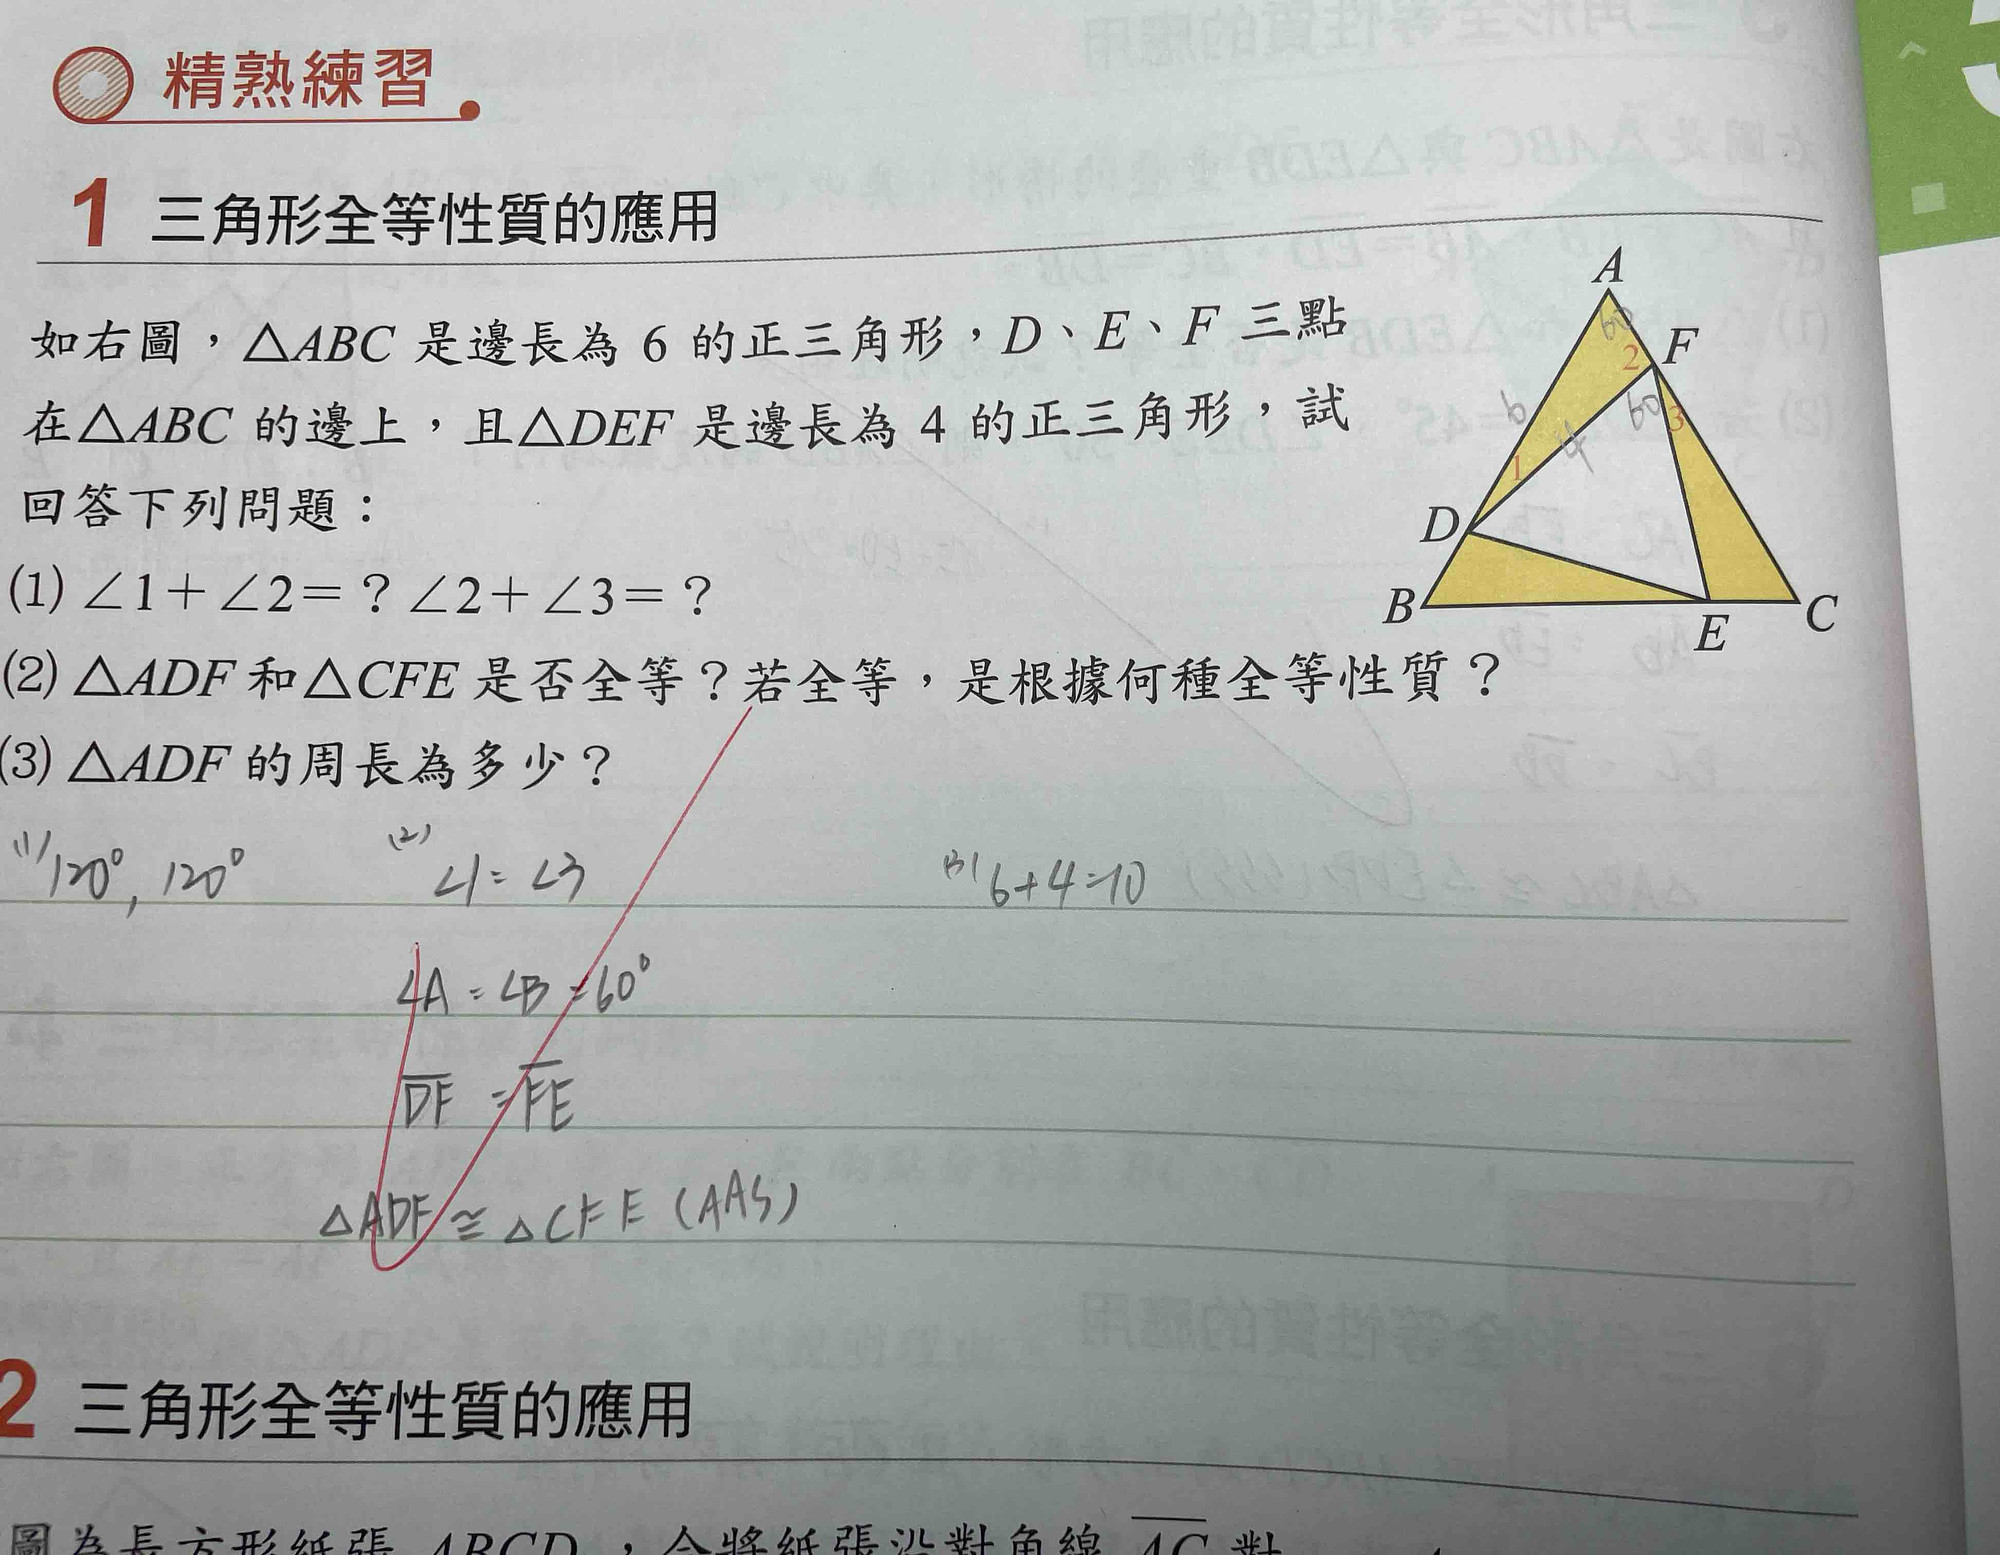 精熟練習
1 三角形全等性質的應用
如右圖，△ABC 是邊長為 6 的正三角形，D、E、F 三點
在△ABC 的邊上，且△DEF 是邊長為 4 的正三角形，試
回答下列問題：
(1) ∠1＋∠2＝？∠2＋∠3＝？
(2) △ADF 和△CFE 是否全等？若全等，是根據何種全等性質？
(3) △ADF 的周長為多少？
A
60
2
F
6
60
3
4
1
D
B
E
C
(1) 120°, 120°
(2) ∠1=∠3
(3) 6+4=10
∠A=∠B=60°
D̅F̅ = F̅E̅
△ADF ≅ △CFE (AAS)
2 三角形全等性質的應用
圖為長方形紙張 ABCD，今將紙張沿對角線 A̅C̅ 對